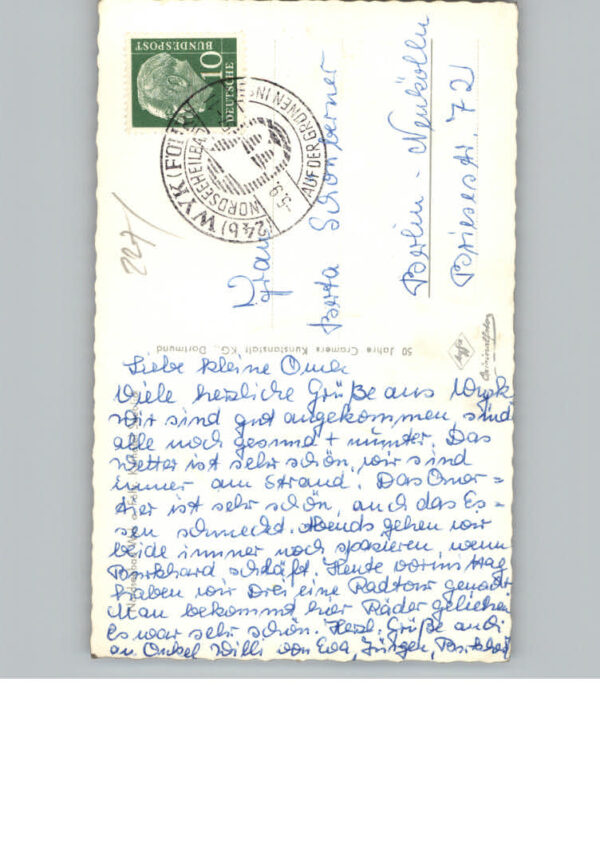 Liebe kleine Oma
Viele herzliche Grüße aus Wyk,
wir sind gut angekommen, sind
alle noch gesund + munter. Das
Wetter ist sehr schön, wir sind
immer am Strand. Das Quar=
tier ist sehr schön, auch das Es-
sen schmeckt. Abends gehen wir
beide immer noch spazieren, wenn
Burkhard schläft. Heute vormittag
haben wir Drei eine Radtour gemacht
Man bekommt hier Räder geliehen
Es war sehr schön. Herzl. Grüße auch
an Onkel Willi von Eva, Jürgen, Burkhard
Frau
Berta Schönberner
Berlin - Neukölln
Brieserstr. 72
227/
50 Jahre Cramers Kunstanstalt KG., Dortmund
Agfa
DEUTSCHE
BUNDESPOST
10
(24b) WYK (FÖHR)
NORDSEEHEILBAD
AUF DER GRÜNEN INSEL